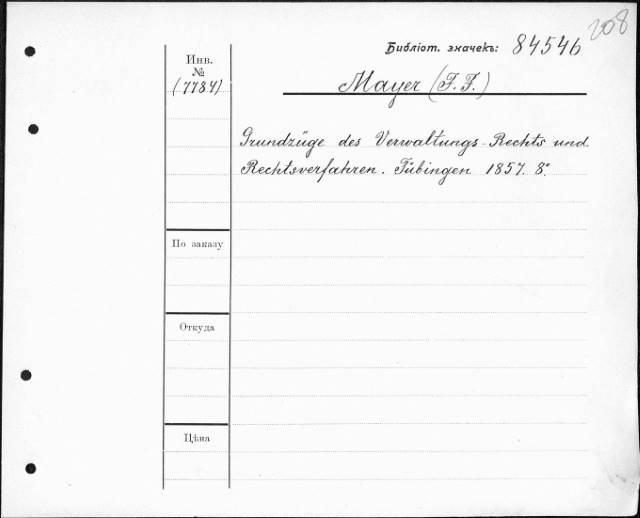 208
Библіот. значекъ: 84546
Инв.
№
(7784)
Mayer (F. F.)
Grundzüge des Verwaltungs-Rechts und
Rechtsverfahren. Tübingen 1857. 8°.
По заказу
Откуда
Цѣна